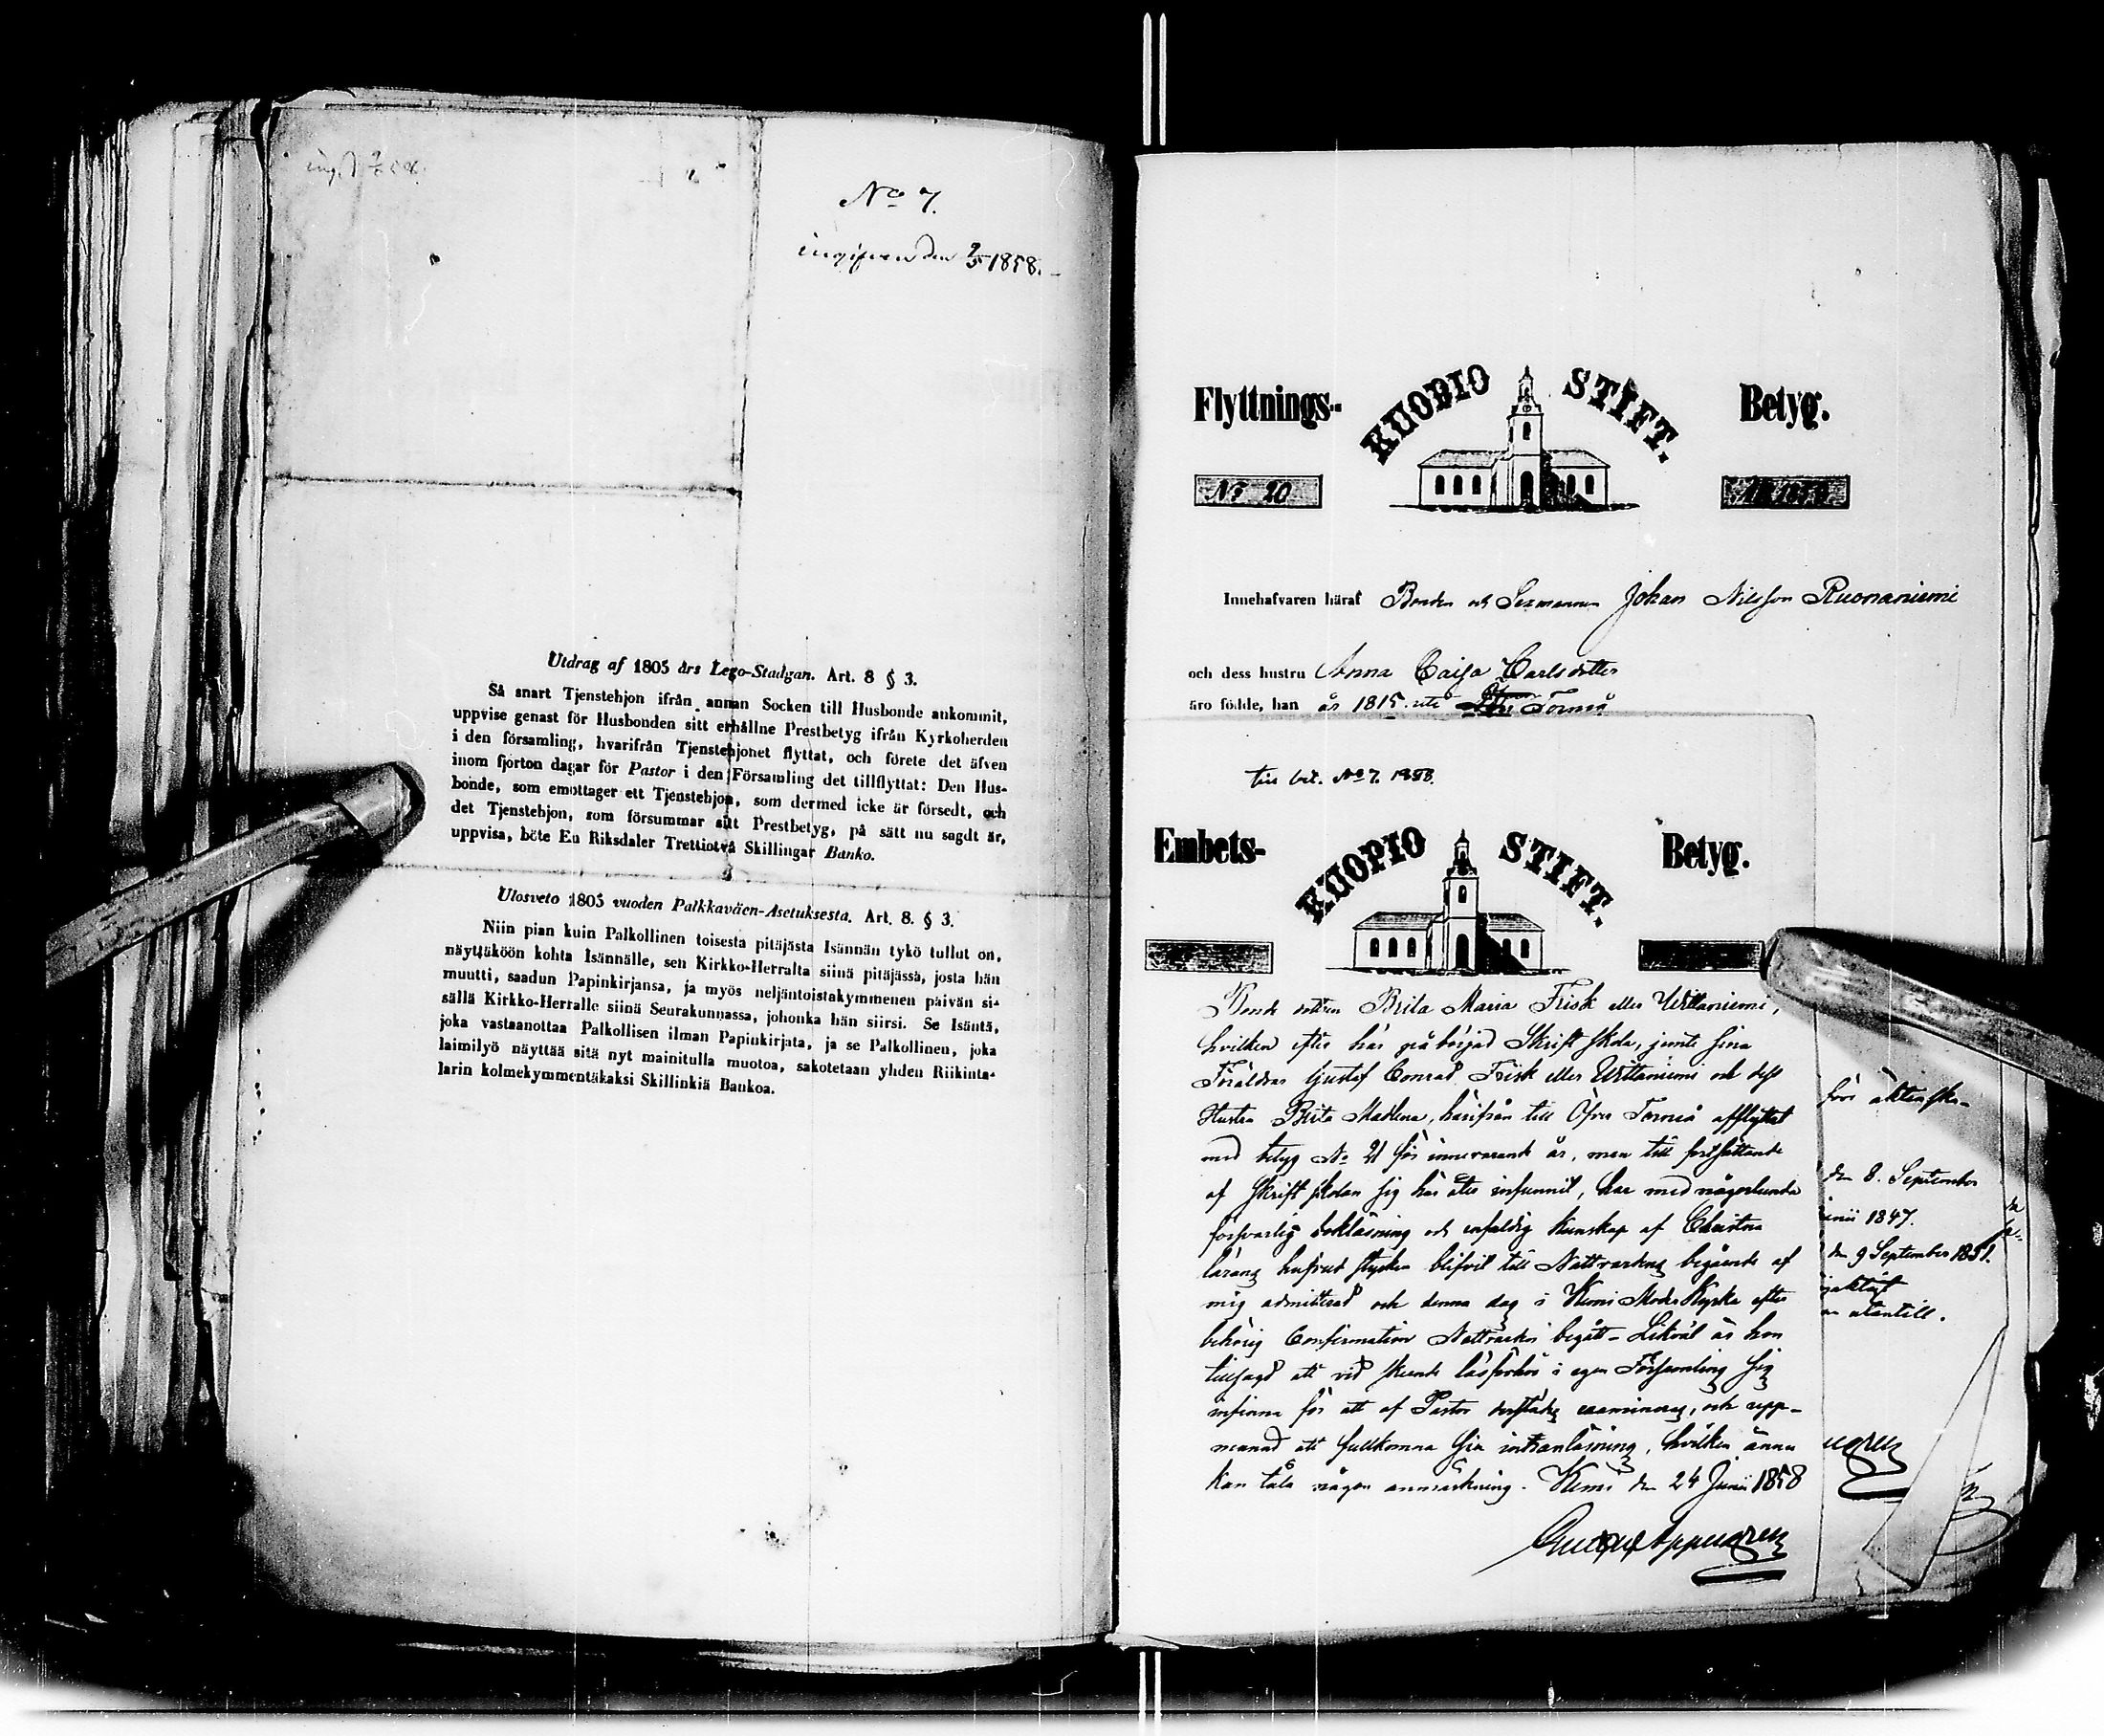 No 7.
ingifven den 9/5 1858.
Utdrag af 1805 års Lego-Stadgan. Art. 8 § 3.
Så snart Tjenstehjon ifrån annan Socken till Husbonde ankommit,
uppvise genast för Husbonden sitt erhållne Prestbetyg ifrån Kyrkoherden
i den församling, hvarifrån Tjenstehjonet flyttat, och förete det äfven
inom fjorton dagar för Pastor i den Församling det tillflyttat: Den Hus-
bonde, som emottager ett Tjenstehjon, som dermed icke är försedt, och
det Tjenstehjon, som försummar sitt Prestbetyg, på sätt nu sagdt är,
uppvisa, böte En Riksdaler Trettiotvå Skillingar Banko.
Ulosveto 1805 vuoden Palkkaväen-Asetuksesta. Art. 8. § 3.
Niin pian kuin Palkollinen toisesta pitäjästa Isännän tykö tullut on,
näyttäköön kohta Isännälle, sen Kirkko-Herralta siinä pitäjässä, josta hän
muutti, saadun Papinkirjansa, ja myös neljäntoistakymmenen päivän si-
sällä Kirkko-Herralle siinä Seurakunnassa, johonka hän siirsi. Se Isäntä,
joka vastaanottaa Palkollisen ilman Papinkirjata, ja se Palkollinen, joka
laimilyö näyttää sitä nyt mainitulla muotoa, sakotetaan yhden Riikinta-
larin kolmekymmentäkaksi Skillinkiä Bankoa.
Flyttnings- KUOPIO STIFT. Betyg.
No 20
Innehafvaren häraf Bonden och Sexmannen Johan Nilsson Ruonaniemi
och dess hustru Anna Caisa Carlsdotter
äro födde, han år 1815 uti Torneå
till bet. No 7. 1858.
Embets- KUOPIO STIFT. Betyg.
Bonde dottren Brita Maria Frisk eller Wittaniemi,
hvilken efter här påbörjad Skriftskola, jemte sina
Föräldrar Gustaf Conrad Frisk eller Wittaniemi och dess
Hustru Brita Madlena, härifrån till Öfver Torneå afflyttat
med betyg No 21 för innevarande år, men till fortsättande
af Skriftskolan sig här åter infunnit, har med någorlunda
försvarlig bokläsning och enfaldig kunskap af Christna
lärans hufvud stycken blifvit till Nattvardens begående af
mig admitterad och denna dag i Kemi Moder Kyrka efter
behörig Confirmation Nattvarden begått – Likväl är hon
tillsagd att vid skeende läsförhör i egen Församling sig
infinna för att af Pastor derstädes examineras, och upp-
manad att fullkomna sin innanläsning, hvilken ännu
kan tåla någon anmärkning. Kemi den 24 Junii 1858
för äktenska-
den 8. September
1847.
den 9 September 1851.
utantill.